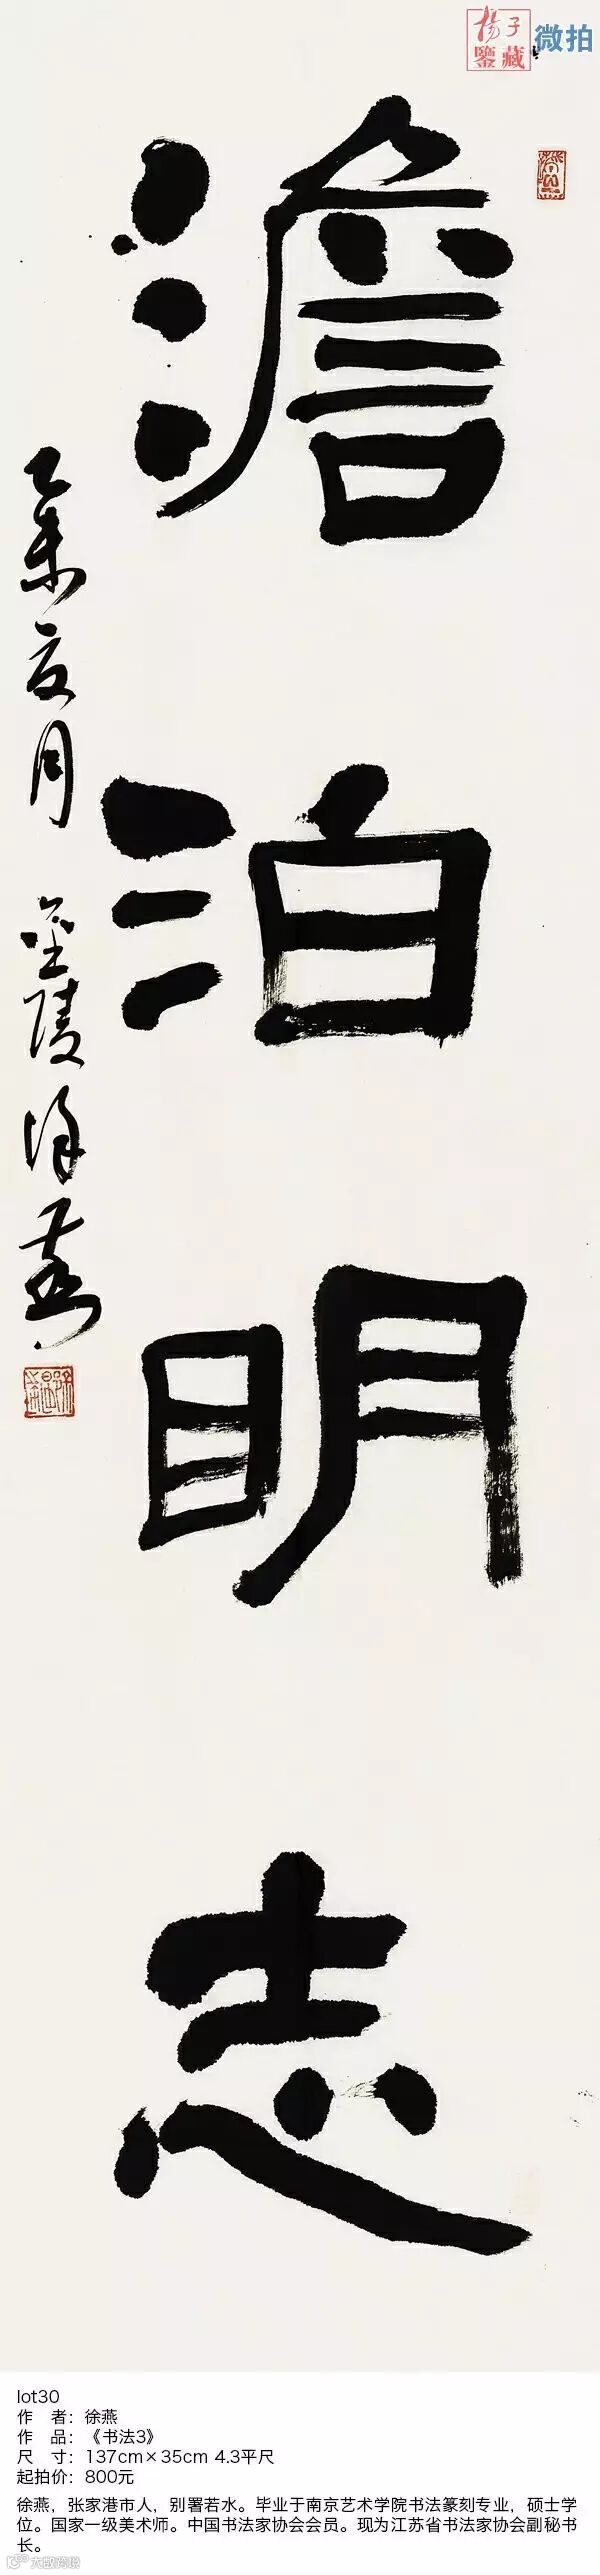 揚子
鑒藏
微拍
澹泊明志
乙未夏月 金陵徐燕
lot30
作 者：徐燕
作 品：《书法3》
尺 寸：137cm×35cm 4.3平尺
起拍价：800元
徐燕，张家港市人，别署若水。毕业于南京艺术学院书法篆刻专业，硕士学
位。国家一级美术师。中国书法家协会会员。现为江苏省书法家协会副秘书
长。
大数跨境